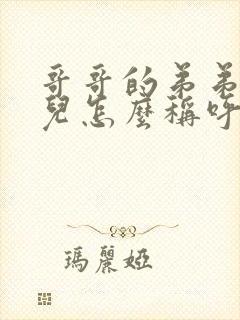 哥哥的弟弟
兒怎麼稱呼
瑪麗婭